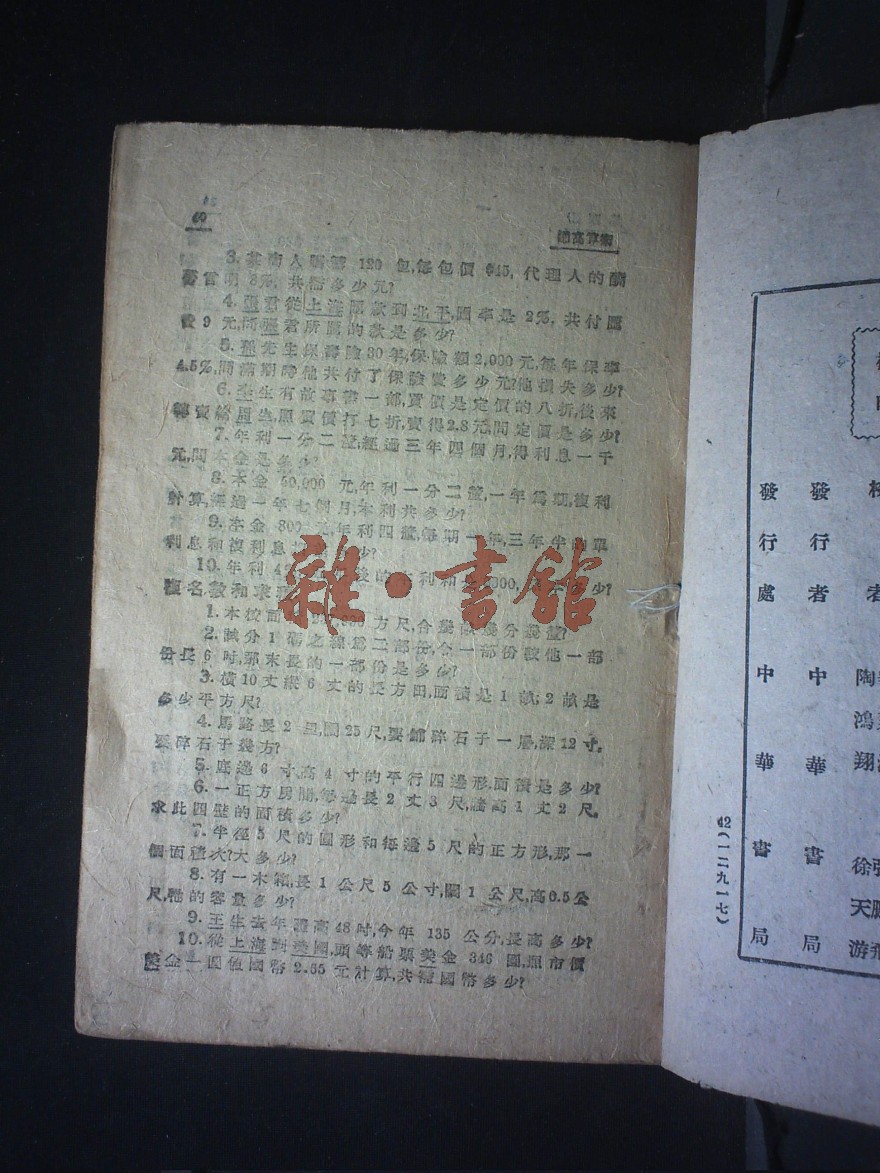 高算術
3. 某商人購 120 包,每包價 $45, 代理人的酬
明 共 多少元?
4. 張君從上海匯款到北平,匯率是 2%, 共付匯
費 9 元,問張君所匯的款是多少?
5. 先生保壽險30年,保險額2,000元,每年保率
4.5%,問滿期時他共付了保險費多少元?他損失多少?
6. 生有故事書一部,買價是定價的八折,後來
轉賣給周生,照買價打七折,賣得2.8元,問定價是多少?
7. 年利一分二釐,經過三年四個月,得利息一千
元,問本金是多少?
8. 本金 元,年利一分二釐,一年爲期,複利
計算,經過一年七個月,本利共多少?
9. 本金 800 元,年利四釐,每期一年,三年半的單
利息和複利息 少?
10. 年利 後的本利和 少?
名數和求
1. 本校面 方尺,合幾畝幾分幾釐?
2. 試分 1 之線爲二部份,令一部份較他一部
份長 6 吋,那末長的一部份是多少?
3. 橫10丈縱 6 丈的長方田,面積是 1 畝;2 畝是
多少平方尺?
4. 馬路長 2 里,闊25尺,要鋪碎石子一層,深12寸,
碎石子幾方?
5. 底邊 6 寸,高 4 寸的平行四邊形面積是多少?
6. 一正方房間,每邊長 2 丈 3 尺,牆高 1 丈 2 尺,
求此四壁的面積多少?
7. 半徑 5 尺的圓形和每邊 5 尺的正方形,那一
個面積大?大多少?
8. 有一木箱,長 1 公尺 5 公寸,闊 1 公尺,高0.5公
尺,牠的容量多少?
9. 王生去年體高48吋,今年 135 公分,長高多少?
10. 從上海到美國,頭等船票美金 346 圓,照市價
美金一圓值國幣 2.65 元計算,共需國幣多少?
雜·書館
發行者 陶鴻翔 徐天游
發行者 中華書局
發行處 中華書局
42(一二九一七)